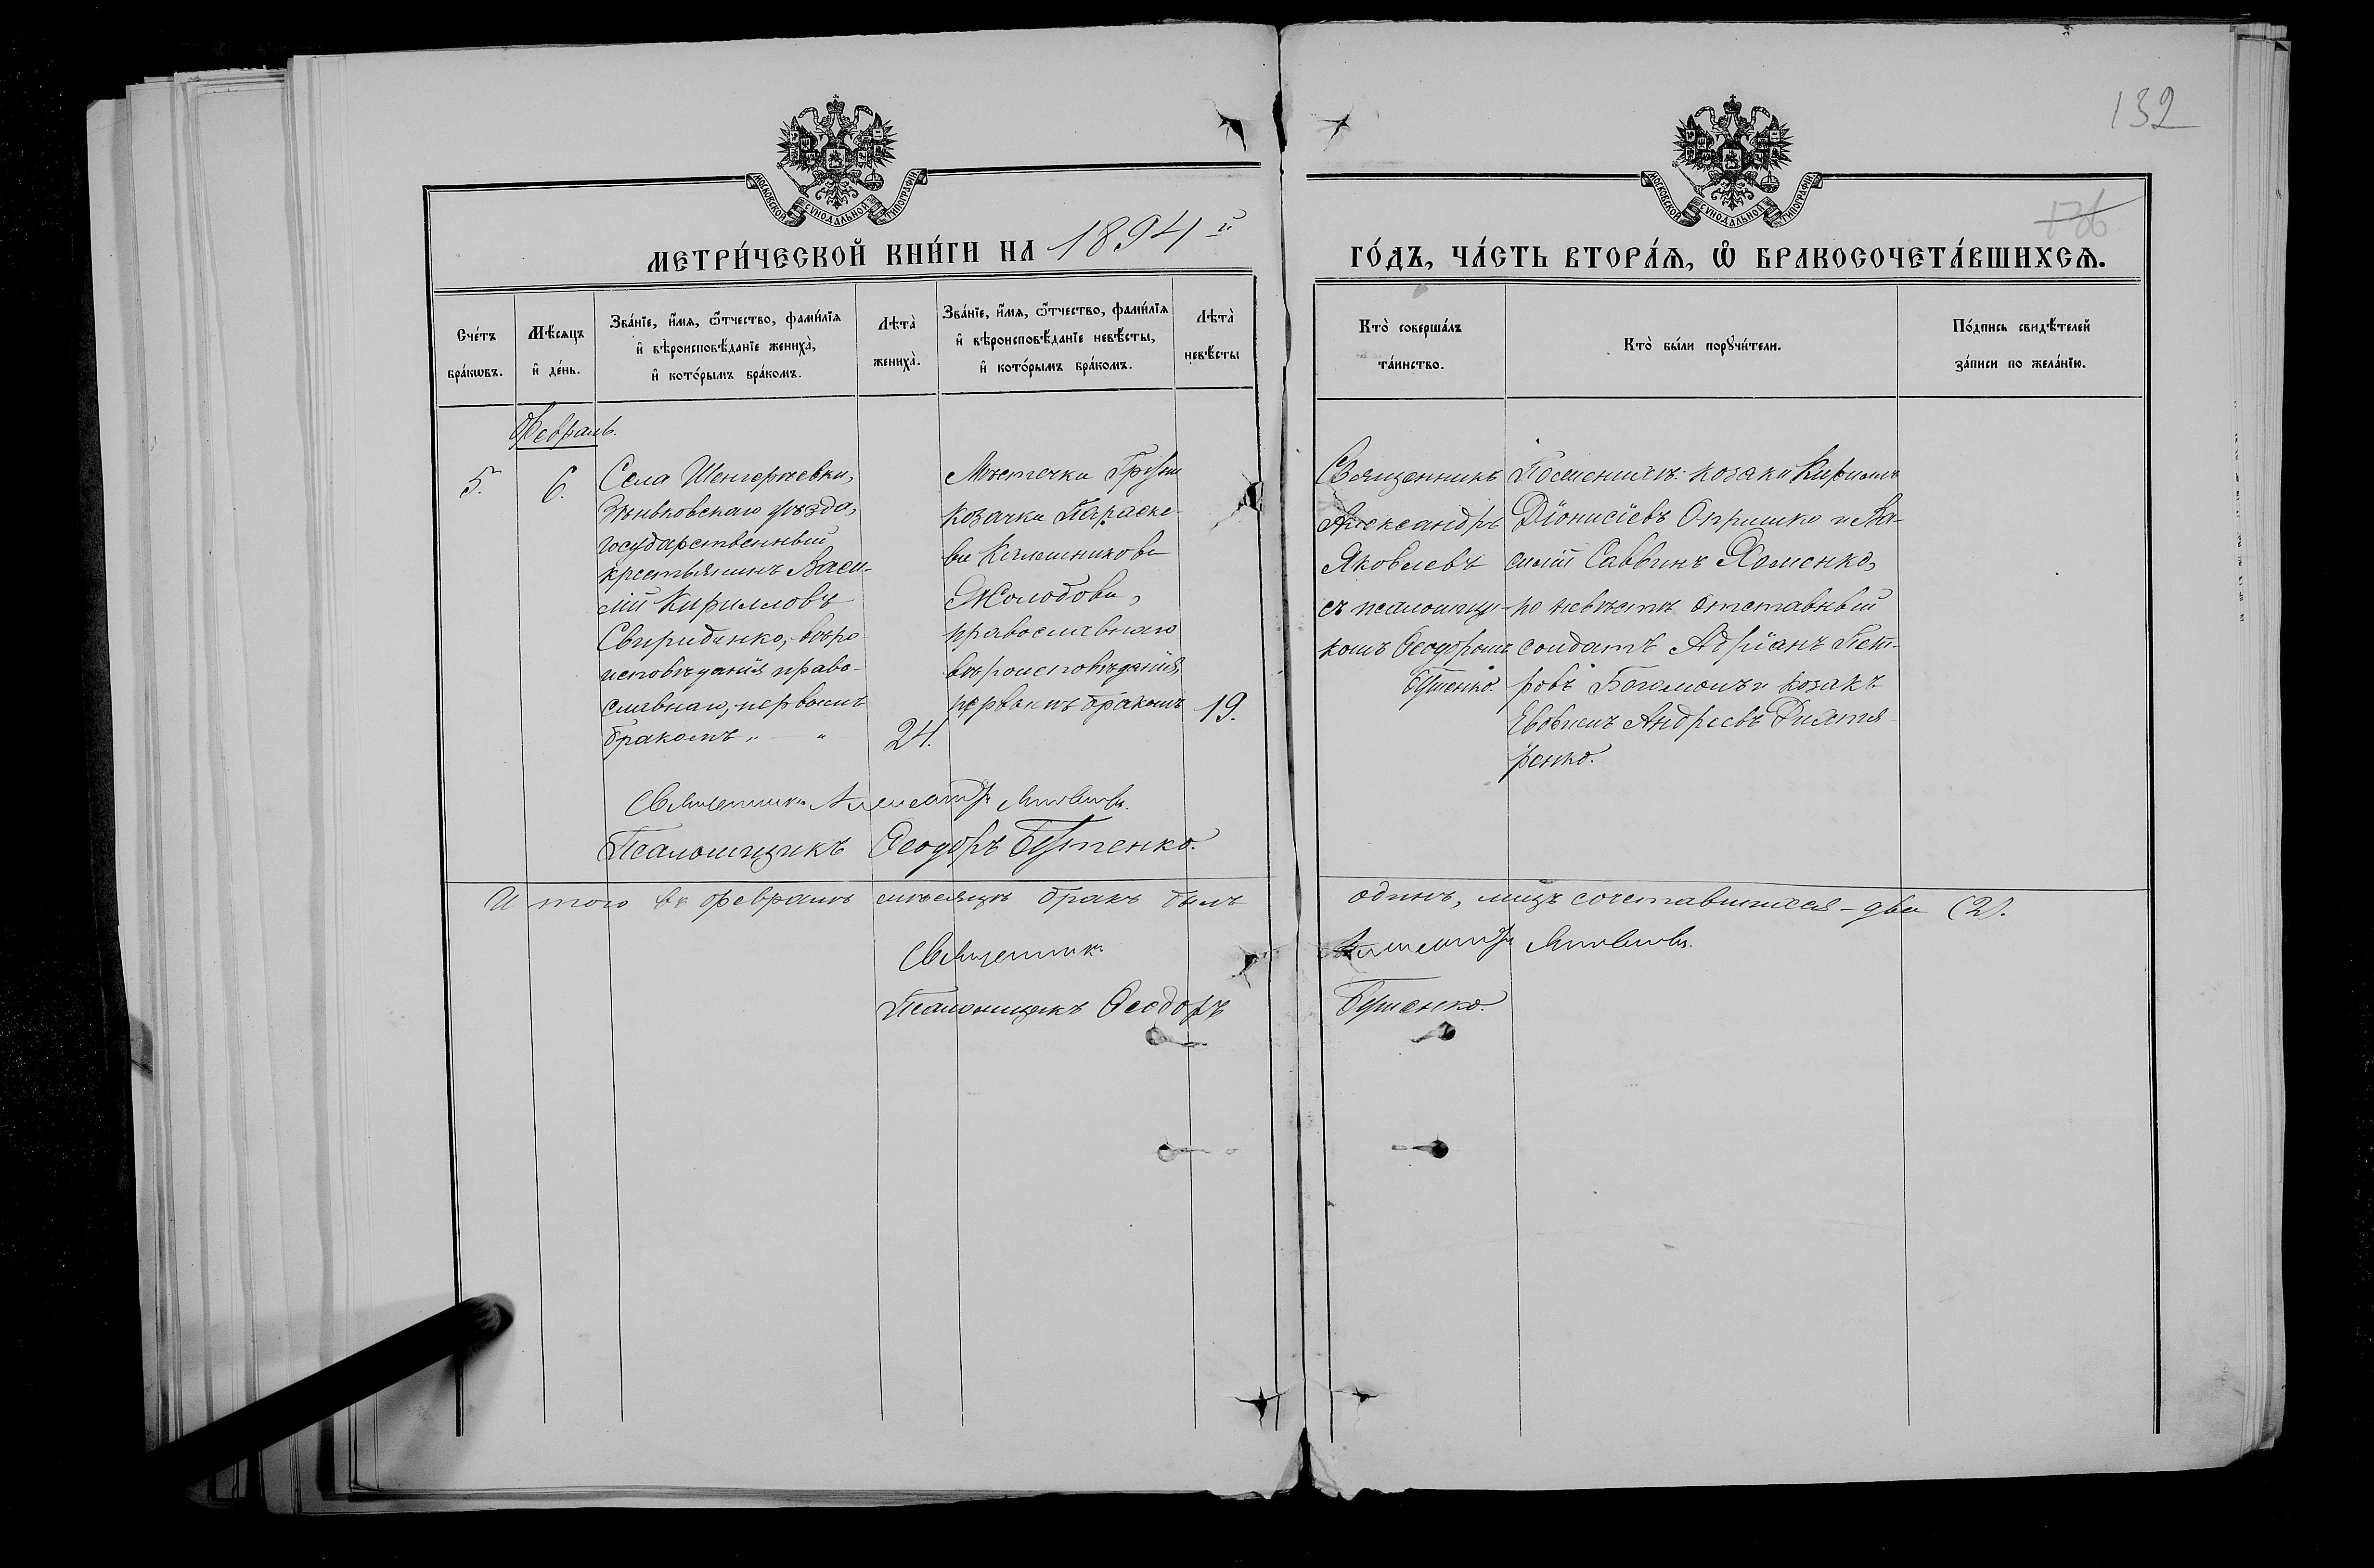 132
176
МОСКОВСКОЙ СѴНОДАЛЬНОЙ ТИПОГРАФІИ
МОСКОВСКОЙ СѴНОДАЛЬНОЙ ТИПОГРАФІИ
МЕТРИ́ЧЕСКОЙ КНИ́ГИ НА 1894 й
ГО́ДЪ, ЧА́СТЬ ВТОРА́Ѧ, Ѡ҆ БРАКОСОЧЕТА́ВШИХСѦ.
Сче́тъ
бра́кѡвъ.
Мѣ́сяцъ
и҆ де́нь.
Зва́нїе, и҆́мя, ѻ҆́тчество, фами́лїя
и҆ вѣроисповѣ́данїе жениха̀,
и҆ кото́рымъ бра́комъ.
Лѣта̀
жениха̀.
Зва́нїе, и҆́мя, ѻ҆́тчество, фами́лїя
и҆ вѣроисповѣ́данїе невѣ́сты,
и҆ кото́рымъ бра́комъ.
Лѣта̀
невѣ́сты
Кто̀ соверша́лъ
та́инство.
Кто̀ бы́ли порꙋчи́тели.
По́дпись свидѣ́телей
за́писи по жела́нїю.
Февраль.
5.
6.
Села Шенгерѣевки,
Зѣньковскаго уѣзда,
государственный
крестьянинъ Васи-
лій Кирилловъ
Свириденко, вѣро
исповѣданія право-
славнаго, первымъ
бракомъ „ „
24.
Мѣстечка Груни
козачка Параске
ва Калинникова
Молодова,
православнаго
вѣроисповѣданія,
первымъ бракомъ
19.
Священникъ
Александръ
Яковлевъ
съ псаломщи-
комъ Ѳеодоромъ
Бутенко.
По женихѣ: козаки Кириллъ
Діонисіевъ Опришко и Ва-
силій Саввинъ Хоменко,
по невѣстѣ отставный
солдатъ Адріанъ Пет-
ровъ Богомолъ и козакъ
Евѳимъ Андреевъ
ренко.
Священникъ Александръ Яковлевъ.
Псаломщикъ Ѳеодоръ Бутенко.
И того въ февралѣ мѣсяцѣ бракъ былъ одинъ, лицъ сочетавшихся – два (2).
Священникъ Александръ Яковлевъ.
Псаломщикъ Ѳеодоръ Бутенко.